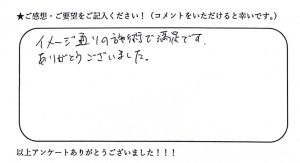 ★ご感想・ご要望をご記入ください!(コメントをいただけると幸いです。)
イメージ通りの施術で満足です。
ありがとうございました。
以上アンケートありがとうございました!!!